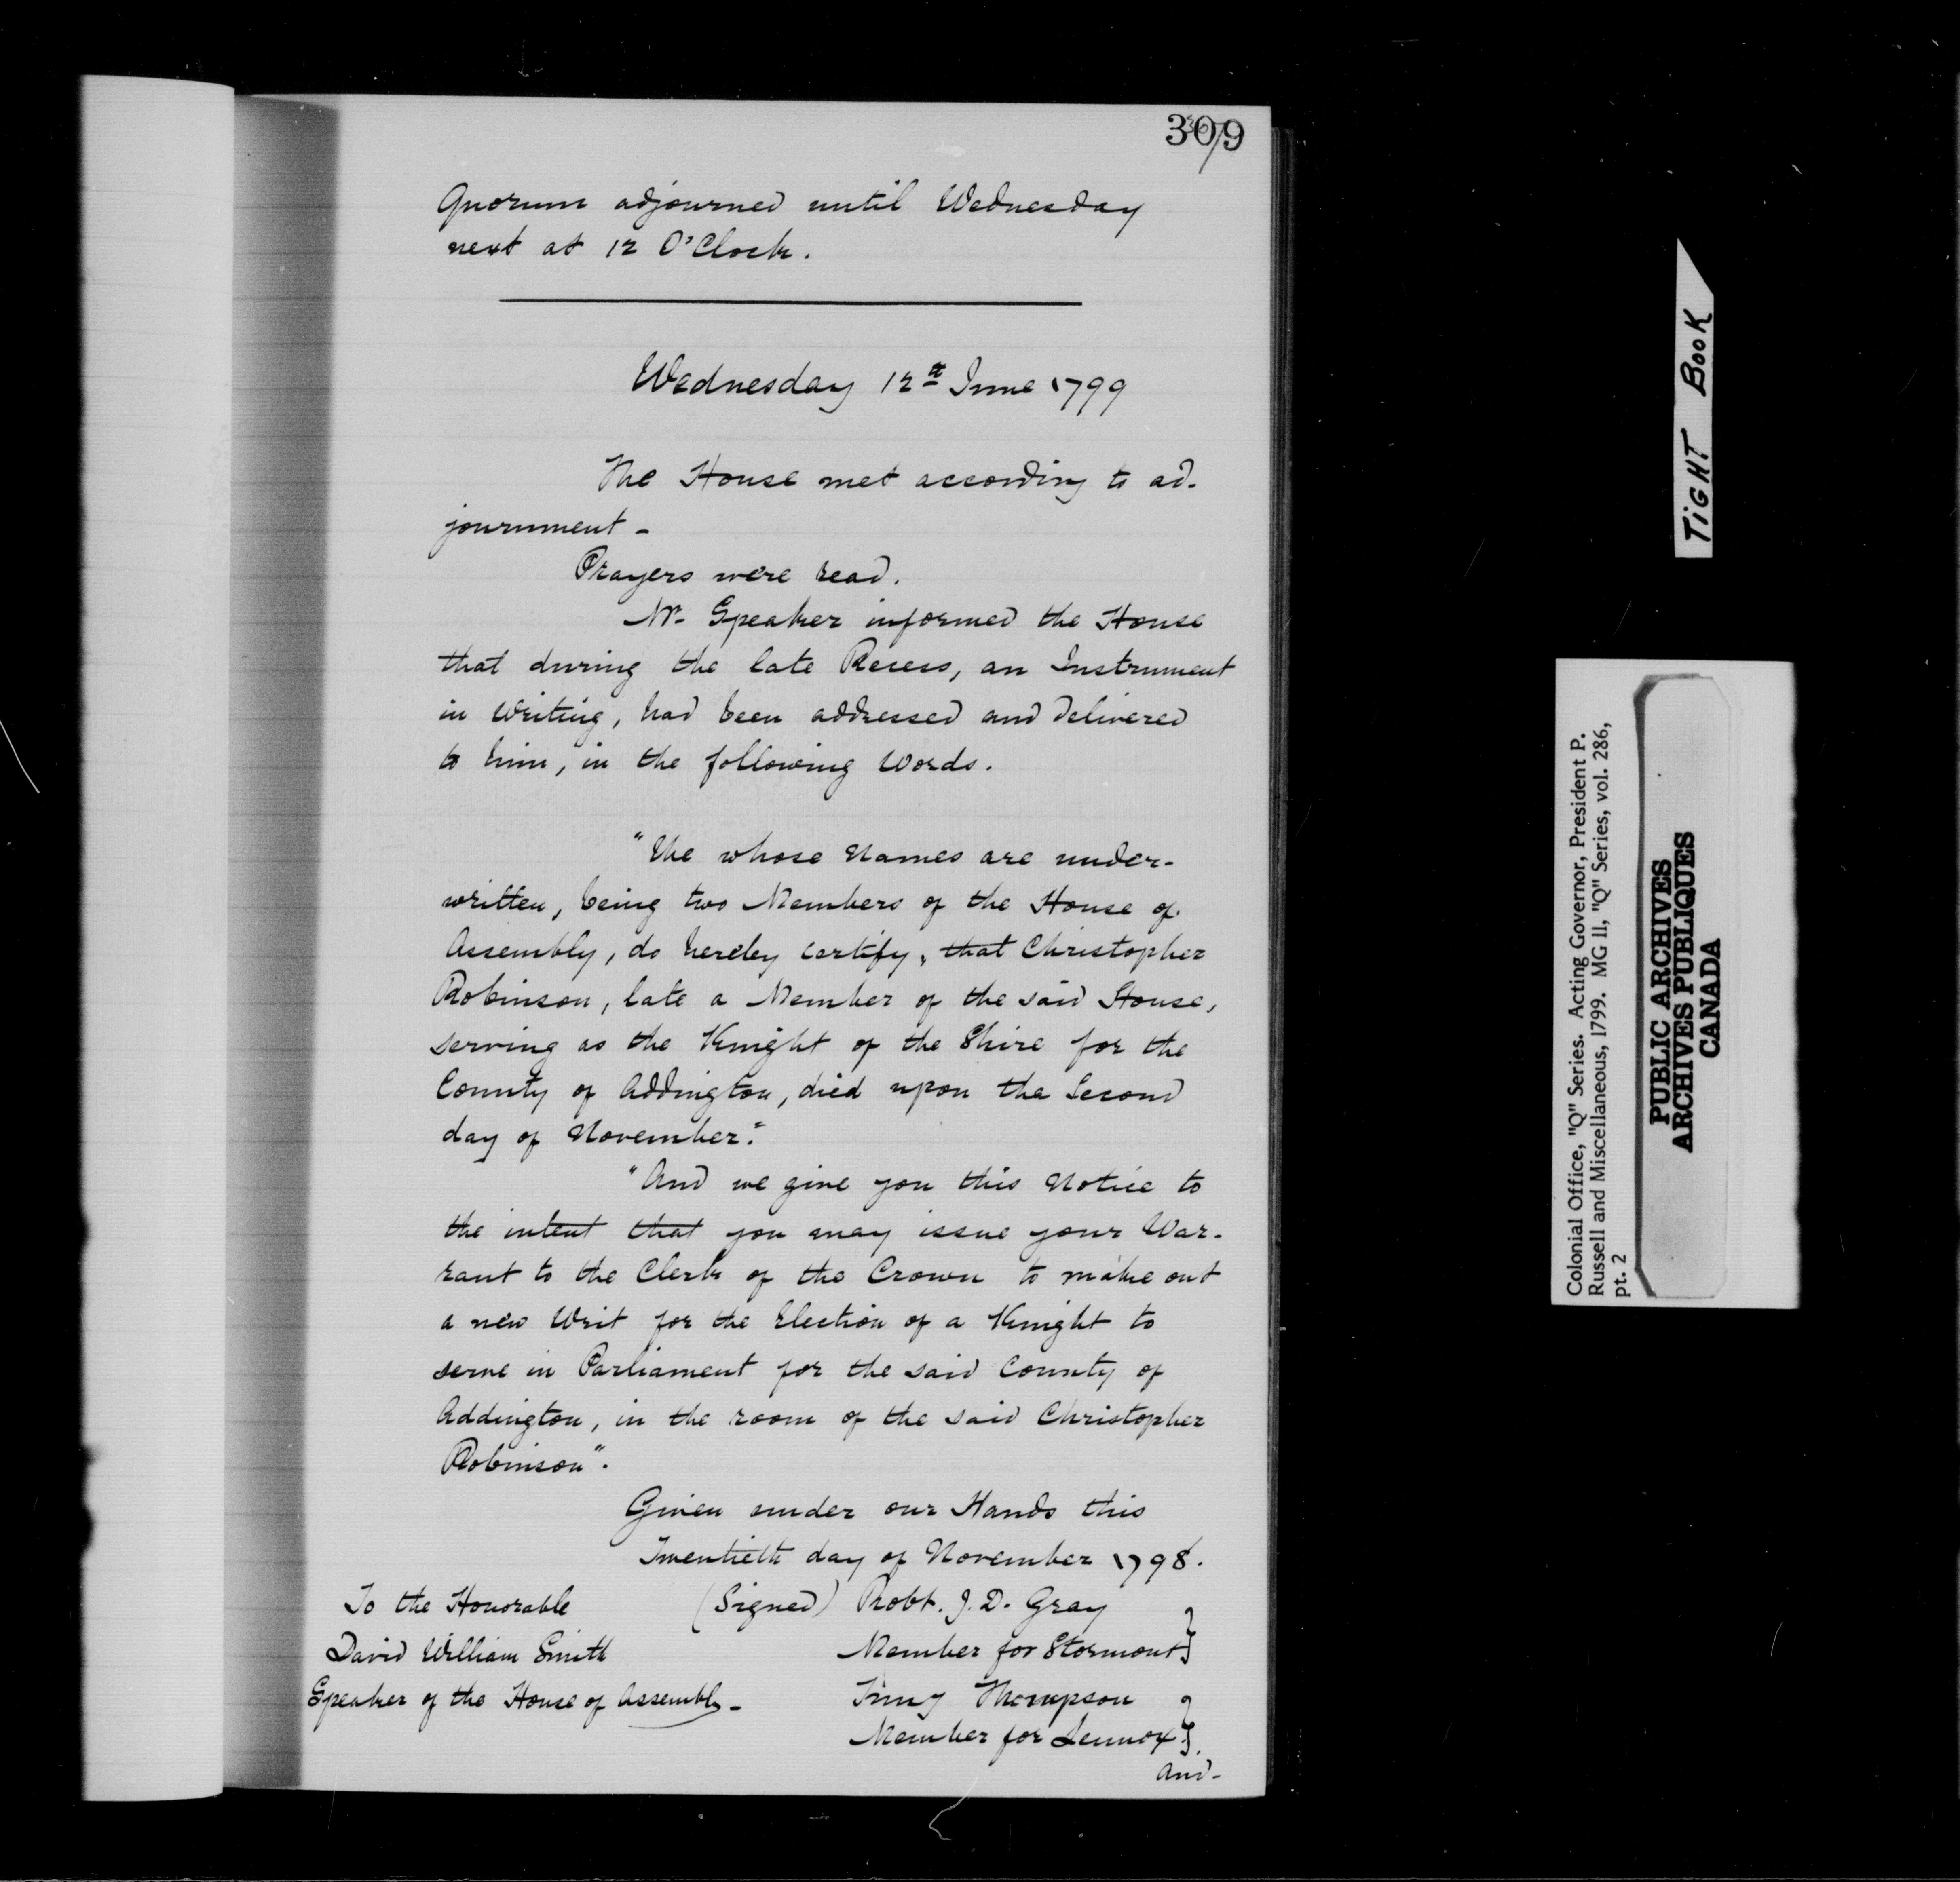 309
Quorum adjourned until Wednesday
next at 12 O'Clock.
Wednesday 12th June 1799
The House met according to ad-
journment -
Prayers were read.
Mr. Speaker informed the House
that during the late Recess, an Instrument
in Writing, had been addressed and delivered
to him, in the following Words.
"We whose Names are under-
written, being two Members of the House of
Assembly, do hereby certify, that Christopher
Robinson, late a Member of the said House,
serving as the Knight of the Shire for the
County of Addington, died upon the Second
day of November."
"And we give you this Notice to
the intent that you may issue your War-
rant to the Clerk of the Crown to make out
a new Writ for the Election of a Knight to
serve in Parliament for the said County of
Addington, in the room of the said Christopher
Robinson".
Given under our Hands this
Twentieth day of November 1798.
To the Honorable (Signed) Robt. J. D. Gray
David William Smith Member for Stormont
Speaker of the House of Assembly - Timy Thompson
Member for Lennox.
And-
TIGHT BOOK
Colonial Office, "Q" Series. Acting Governor, President P.
Russell and Miscellaneous, 1799. MG 11, "Q" Series, vol. 286,
pt. 2
PUBLIC ARCHIVES
ARCHIVES PUBLIQUES
CANADA